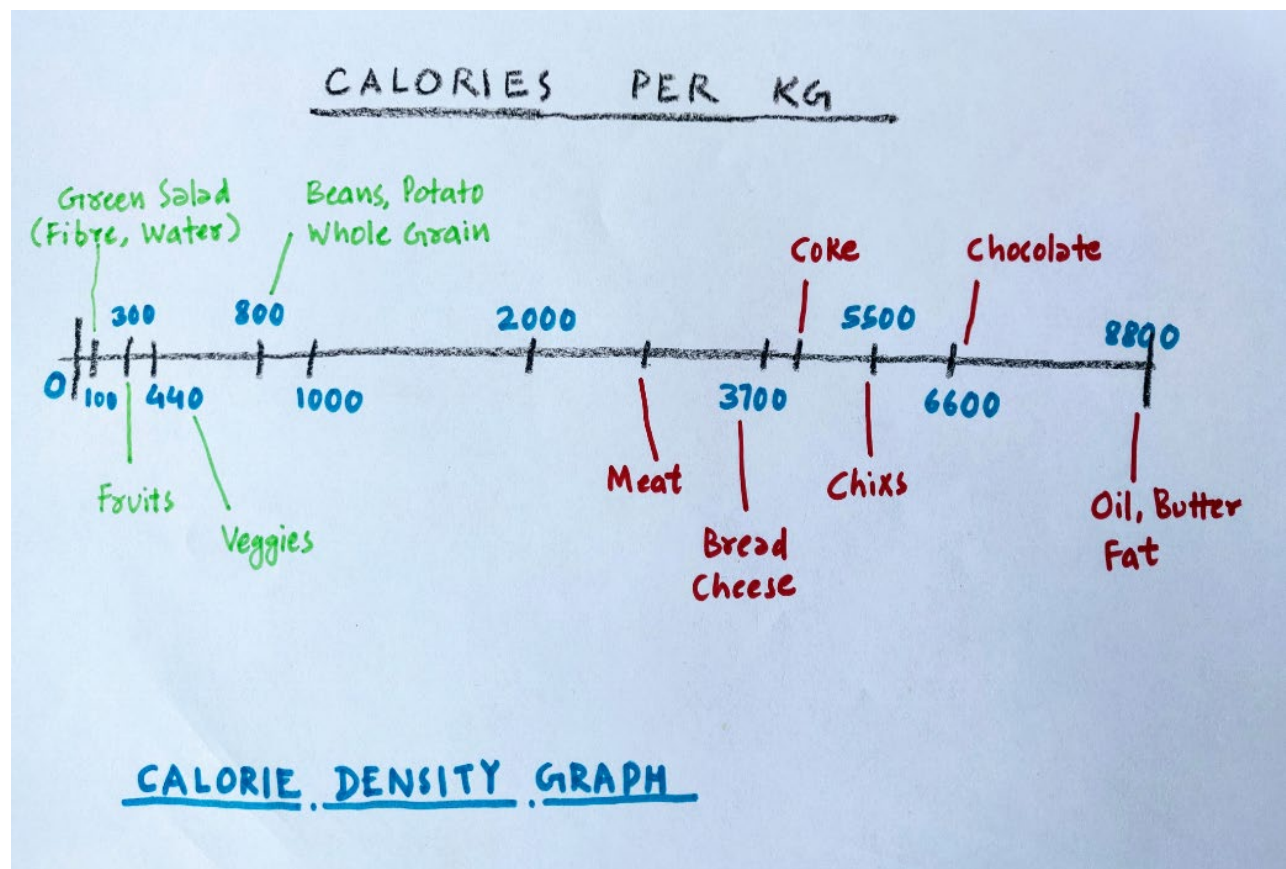 CALORIES PER KG
Green Salad
(Fibre, Water)
Beans, Potato
Whole Grain
Coke
Chocolate
300
800
2000
5500
8800
0
100
440
1000
3700
6600
Fruits
Veggies
Meat
Bread
Cheese
Chixs
Oil, Butter
Fat
CALORIE DENSITY GRAPH